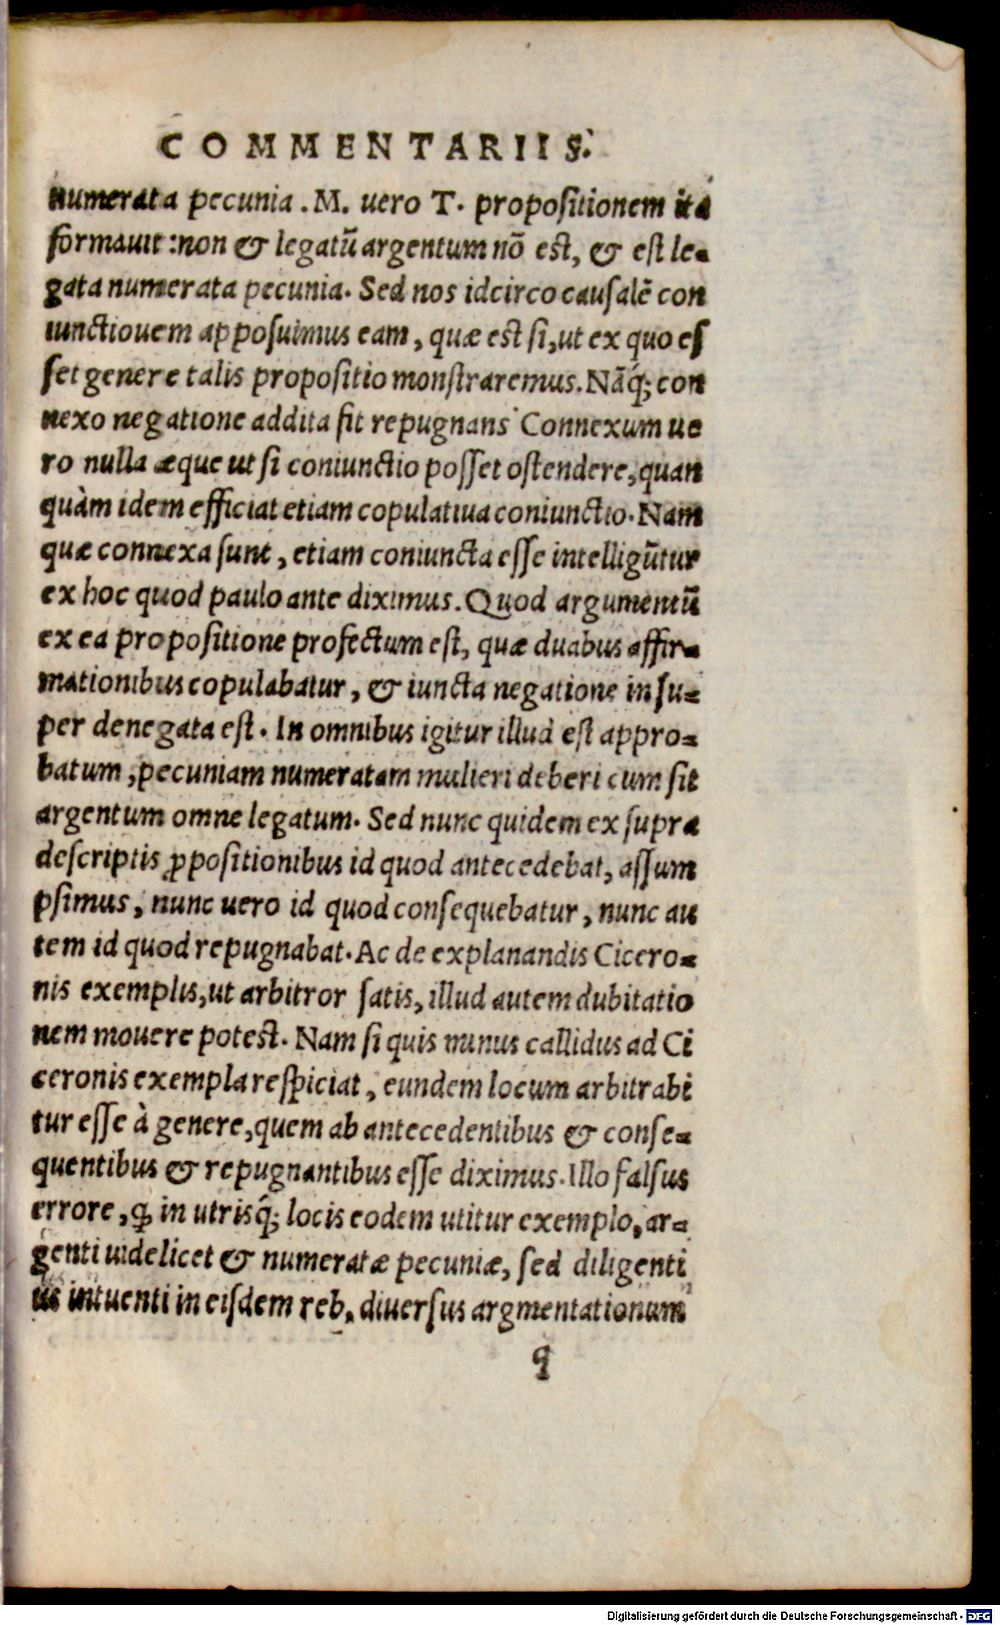 COMMENTARIIS.
numerata pecunia. M. uero T. propositionem ita
formauit: non & legatū argentum nō est, & est le-
gata numerata pecunia. Sed nos idcirco causalē con
iunctiouem apposuimus eam, quæ est si, ut ex quo es
set genere talis propositio monstraremus. Nāq́; con
nexo negatione addita fit repugnans Connexum ue
ro nulla æque ut si coniunctio posset ostendere, quan
quàm idem efficiat etiam copulatiua coniunctio. Nam
quæ connexa sunt, etiam coniuncta esse intelligūtur
ex hoc quod paulo ante diximus. Quod argumentū
ex ea propositione profectum est, quæ duabus affir-
mationibus copulabatur, & iuncta negatione insu-
per denegata est. In omnibus igitur illud est appro-
batum, pecuniam numeratam mulieri deberi cum sit
argentum omne legatum. Sed nunc quidem ex supra
descriptis ꝓpositionibus id quod antecedebat, assum
psimus, nunc uero id quod consequebatur, nunc au
tem id quod repugnabat. Ac de explanandis Cicero-
nis exemplis, ut arbitror satis, illud autem dubitatio
nem mouere potest. Nam si quis minus callidus ad Ci
ceronis exempla respiciat, eundem locum arbitrabi
tur esse à genere, quem ab antecedentibus & conse-
quentibus & repugnantibus esse diximus. Illo falsus
errore, ꝙ in utrisq́; locis eodem utitur exemplo, ar-
genti uidelicet & numeratæ pecuniæ, sed diligenti
us intuenti in eisdem reb. diuersus argmentationum
q
Digitalisierung gefördert durch die Deutsche Forschungsgemeinschaft - DFG